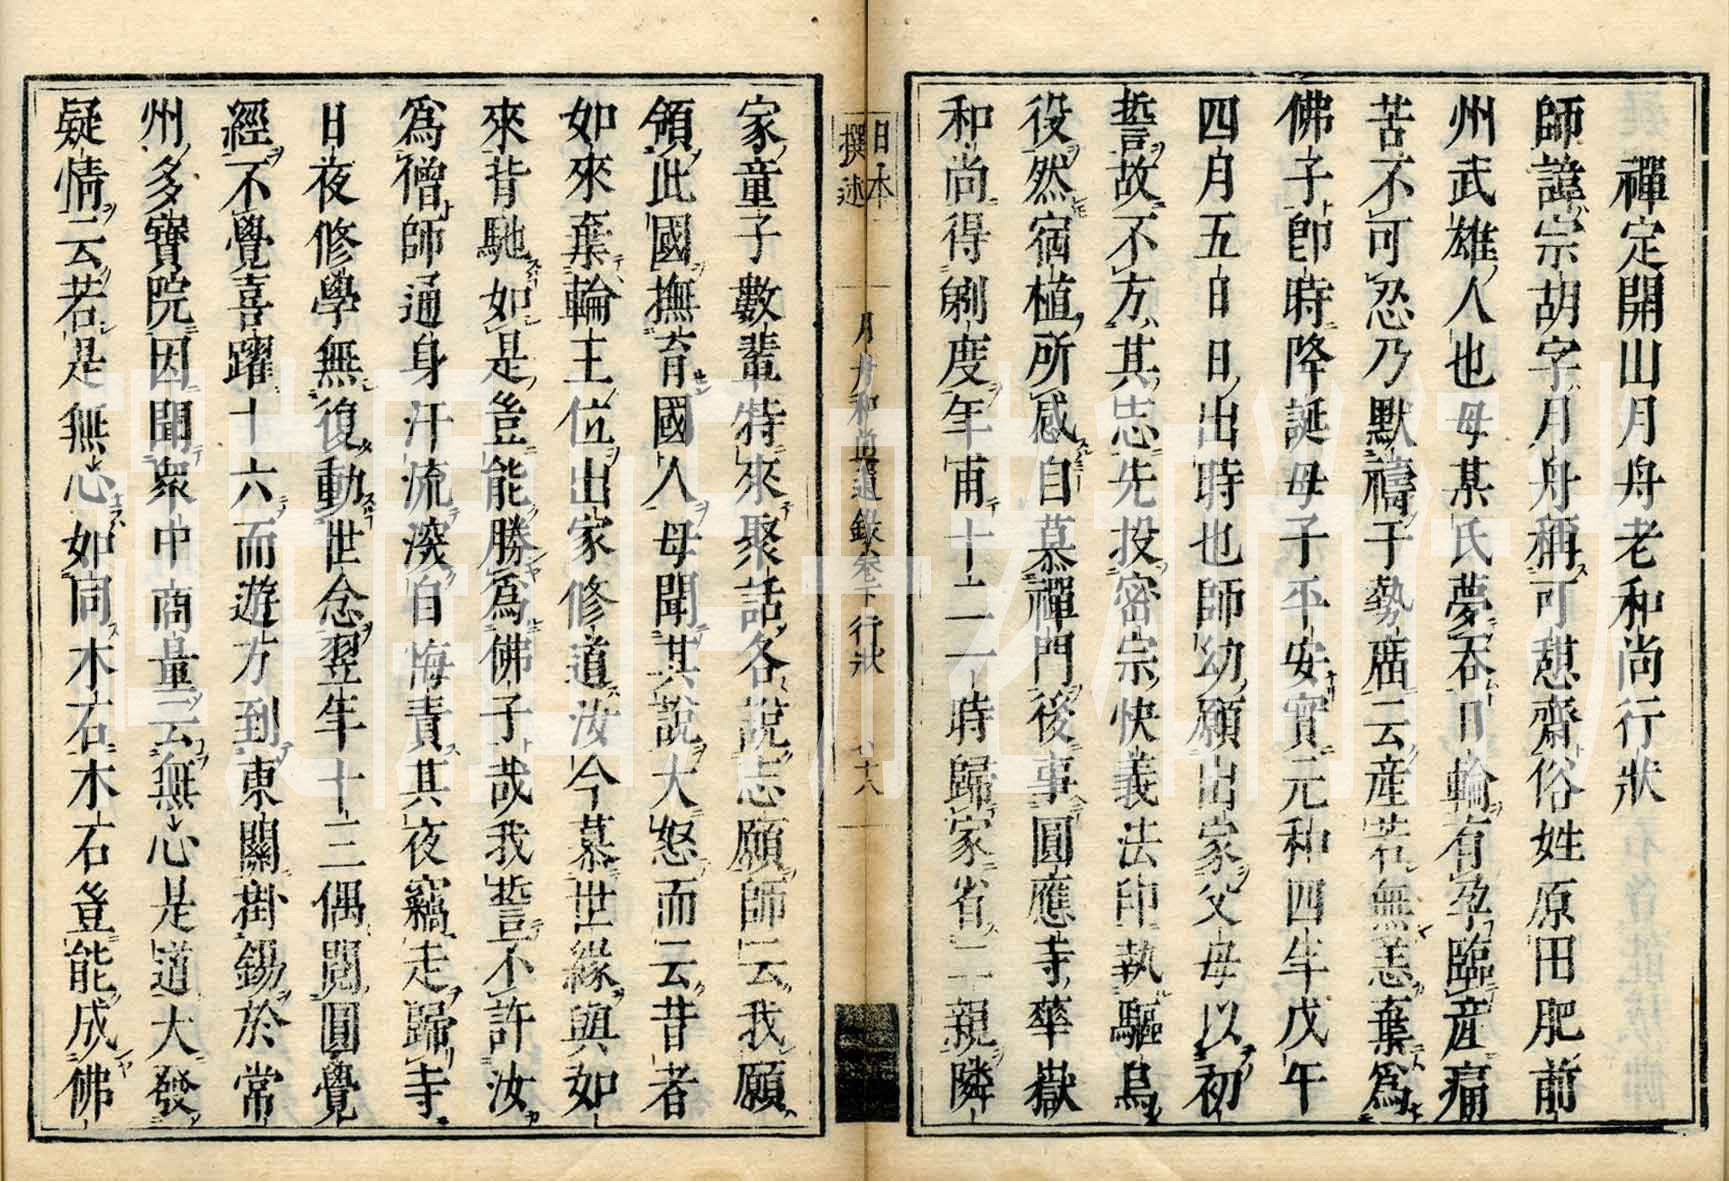 禪定開山月舟老和尚行狀
師諱宗胡字月舟稱可憩齋俗姓原田肥前
州武雄人也母某氏夢吞日輪有孕臨產痛
苦不可忍乃默禱于勢廟云產若無恙棄為
佛子卽時降誕母子平安實元和四年戊午
四月五日日出時也師幼願出家父母以初
誓故不方其志先投密宗快義法印執驅烏
役然宿植所感自慕禪門後事圓應寺華嶽
和尚得剃度年甫十二一時歸家省二親隣
日本撰述
月舟和尚遺錄卷下行狀
十八
家童子數輩特來聚話各說志願師云我願
領此國撫育國人母聞其說大怒而云昔者
如來棄輪王位出家修道汝今慕世緣與如
來背馳如是豈能勝為佛子哉我誓不許汝
為僧師通身汗流深自悔責其夜竊走歸寺
日夜修學無復動世念翌年十三偶閱圓覺
經不覺喜躍十六而遊方到東關掛錫於常
州多寶院因聞衆中商量云無心是道大發
疑情云若是無心如同木石木石豈能成佛